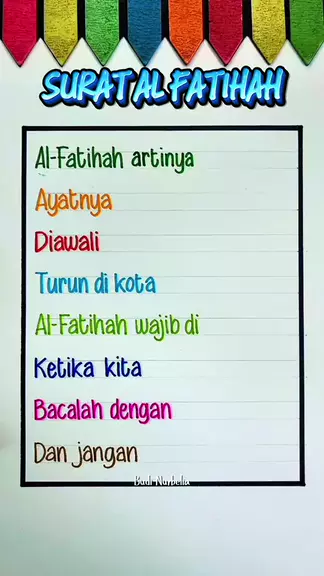 SURAT AL FATIHAH
Al-Fatihah artinya
Ayatnya
Diawali
Turun di kota
Al-Fatihah wajib di
Ketika kita
Bacalah dengan
Dan jangan
Budi Nurbella